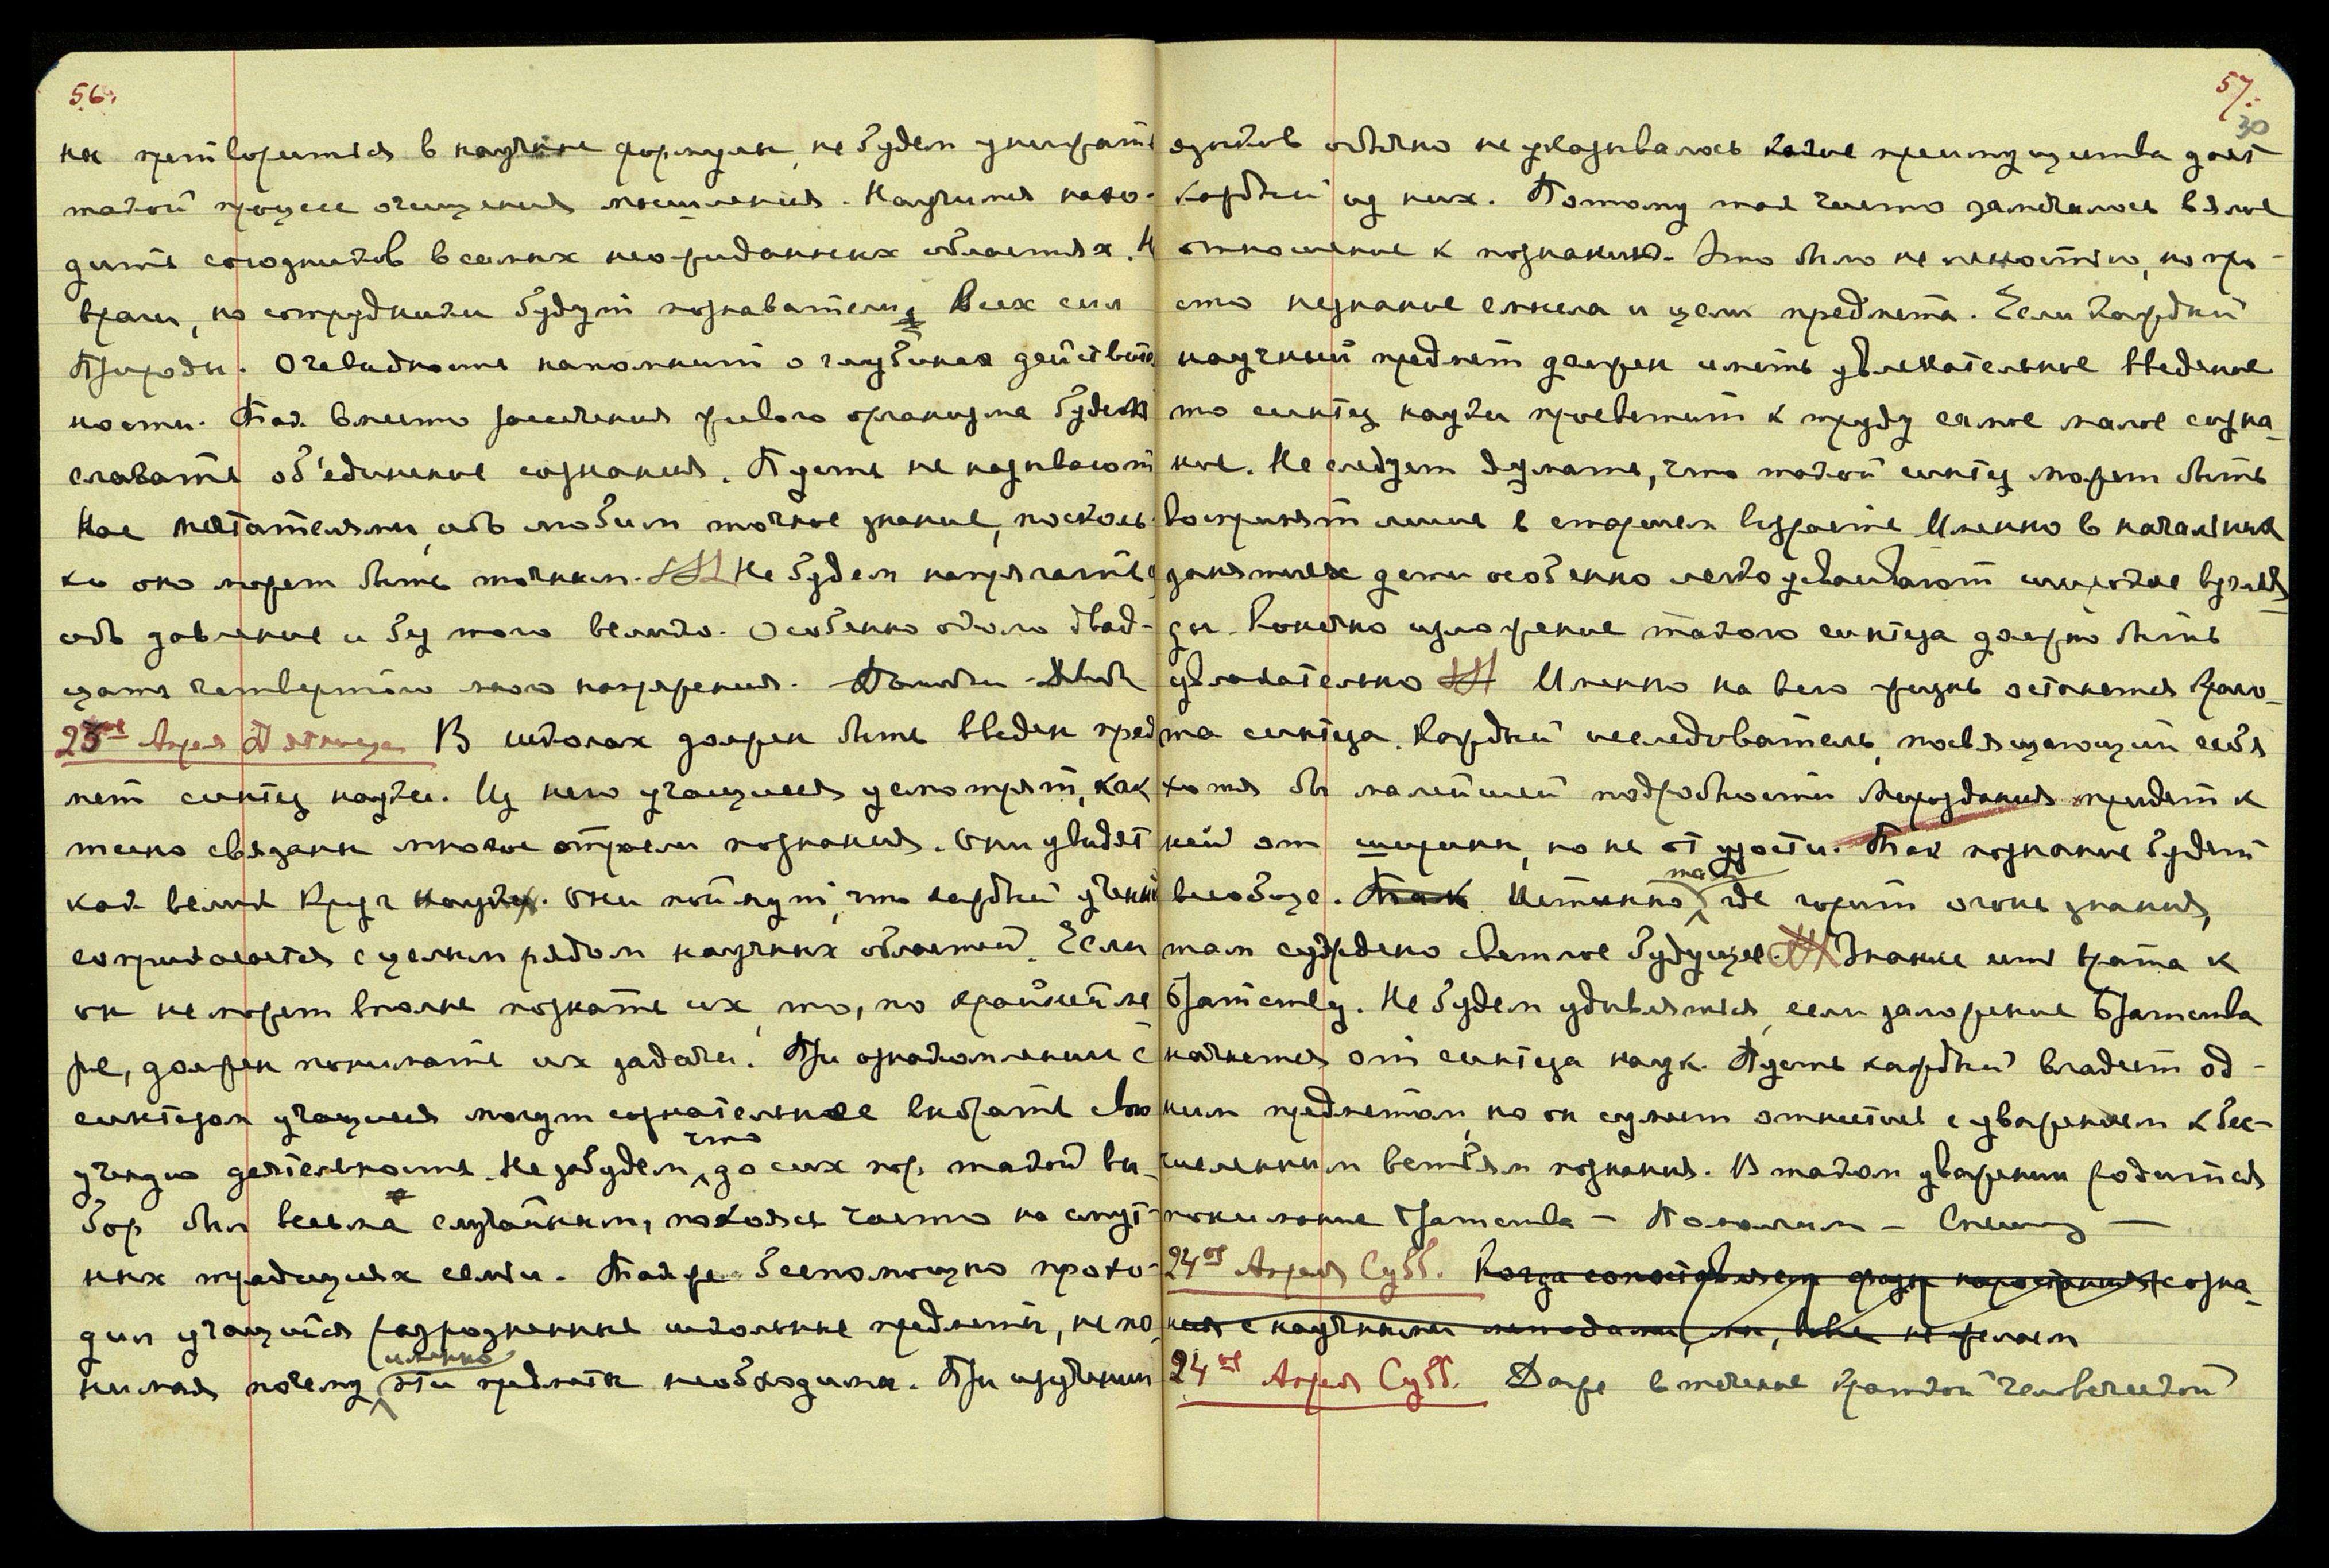 56.
ны претворится в научные формулы, не будем умирать
такой процесс очищения мышления. Научимся нахо-
дить союзников в самых неожиданных областях. Не
враги, но сотрудники будут познаватели Всех сил
Природы. Очевидность напомнит о глубинах действитель
ности. Так вместо рассечения живого организма будем
славать об'единение сознания. Пусть не называют
Нас мечтателями, ибо любим точное знание, посколь-
ко оно может быть точным. Не будем напрягаться
ибо давление и без того велико. Особенно около двад-
цать четвертого много напряжения.
23ое Апреля Пятница В школах должен быть введен пред
мет синтез науки. Из него учащиеся усмотрят, как
тесно связаны многие отрасли познания. Они увидят
как велик Круг науки. Они поймут, что каждый ученый
соприкасается с целым рядом научных областей. Если
он не может вполне познать их, то, по крайней ме
ре, должен понимать их задачи. При ознакомлении с
синтезом учащиеся могут сознательнее выбрать свою
учёную деятельность. Не забудем, что до сих пор такой вы-
бор был весьма случайным, покоясь часто на смут-
ных традициях семьи. Также беспомощно прохо-
дил учащийся разрозненные школьные предметы, не по
нимая почему именно эти предметы необходимы. При изучении
57.
30
языков обычно не указывалось какие преимущества дает
каждый из них. Потому там часто замечалось вялое
отношение к познанию. Это было не леностью, но про-
сто незнание смысла и цели предмета. Если Каждый
научный предмет должен иметь увлекательное введение
то синтез науки просветит к труду самое малое созна-
ние. Не следует думать, что такой синтез может быть
воспринят лишь в старшем возрасте Именно в начальных
занятиях дети особенно легко усваивают широкие взгля
ды. Конечно изложение такого синтеза должно быть
увлекательно Именно на всю жизнь останется красо-
та синтеза. Каждый исследователь, посвящающий себя
хотя бы малейшей подробности Мироздания придет к
ней от ширины, но не от узости. Так познание будет
всеобще. Так Истинно, там где горит огонь знания,
там суждено светлое будущее. Знание есть врата к
Братству. Не будем удивляться, если заложение Братства
начнется от синтеза наук. Пусть каждый владеет од-
ним предметом, но он сумеет отнестись с уважением к бес-
численным ветвям познания. В таком уважении родится
понимание Братства — Помолчим — Спешу —
24ое Апреля Субб. Когда сопоставляем фазы нарастания созна-
ния с научными методами, мы, вовсе не желаем
24ое Апреля Субб. Даже в течение краткой человеческой